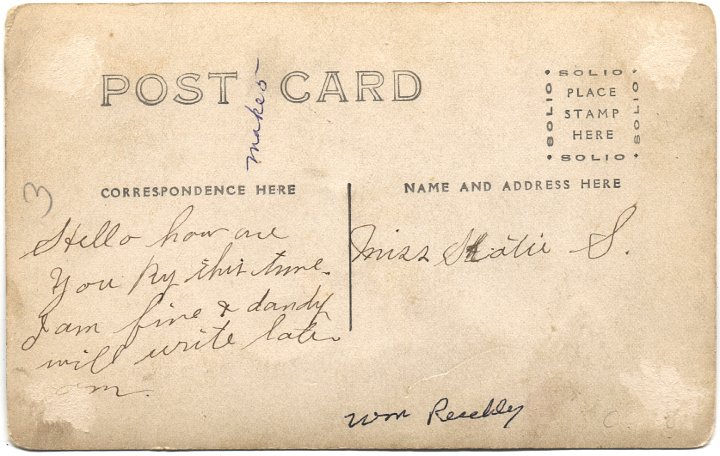 POST CARD
make 5
SOLIO
SOLIO PLACE SOLIO
STAMP
HERE
SOLIO
3
CORRESPONDENCE HERE
NAME AND ADDRESS HERE
Hello how are
You by this time.
I am fine & dandy
will write later
Miss Katie S.
Wm